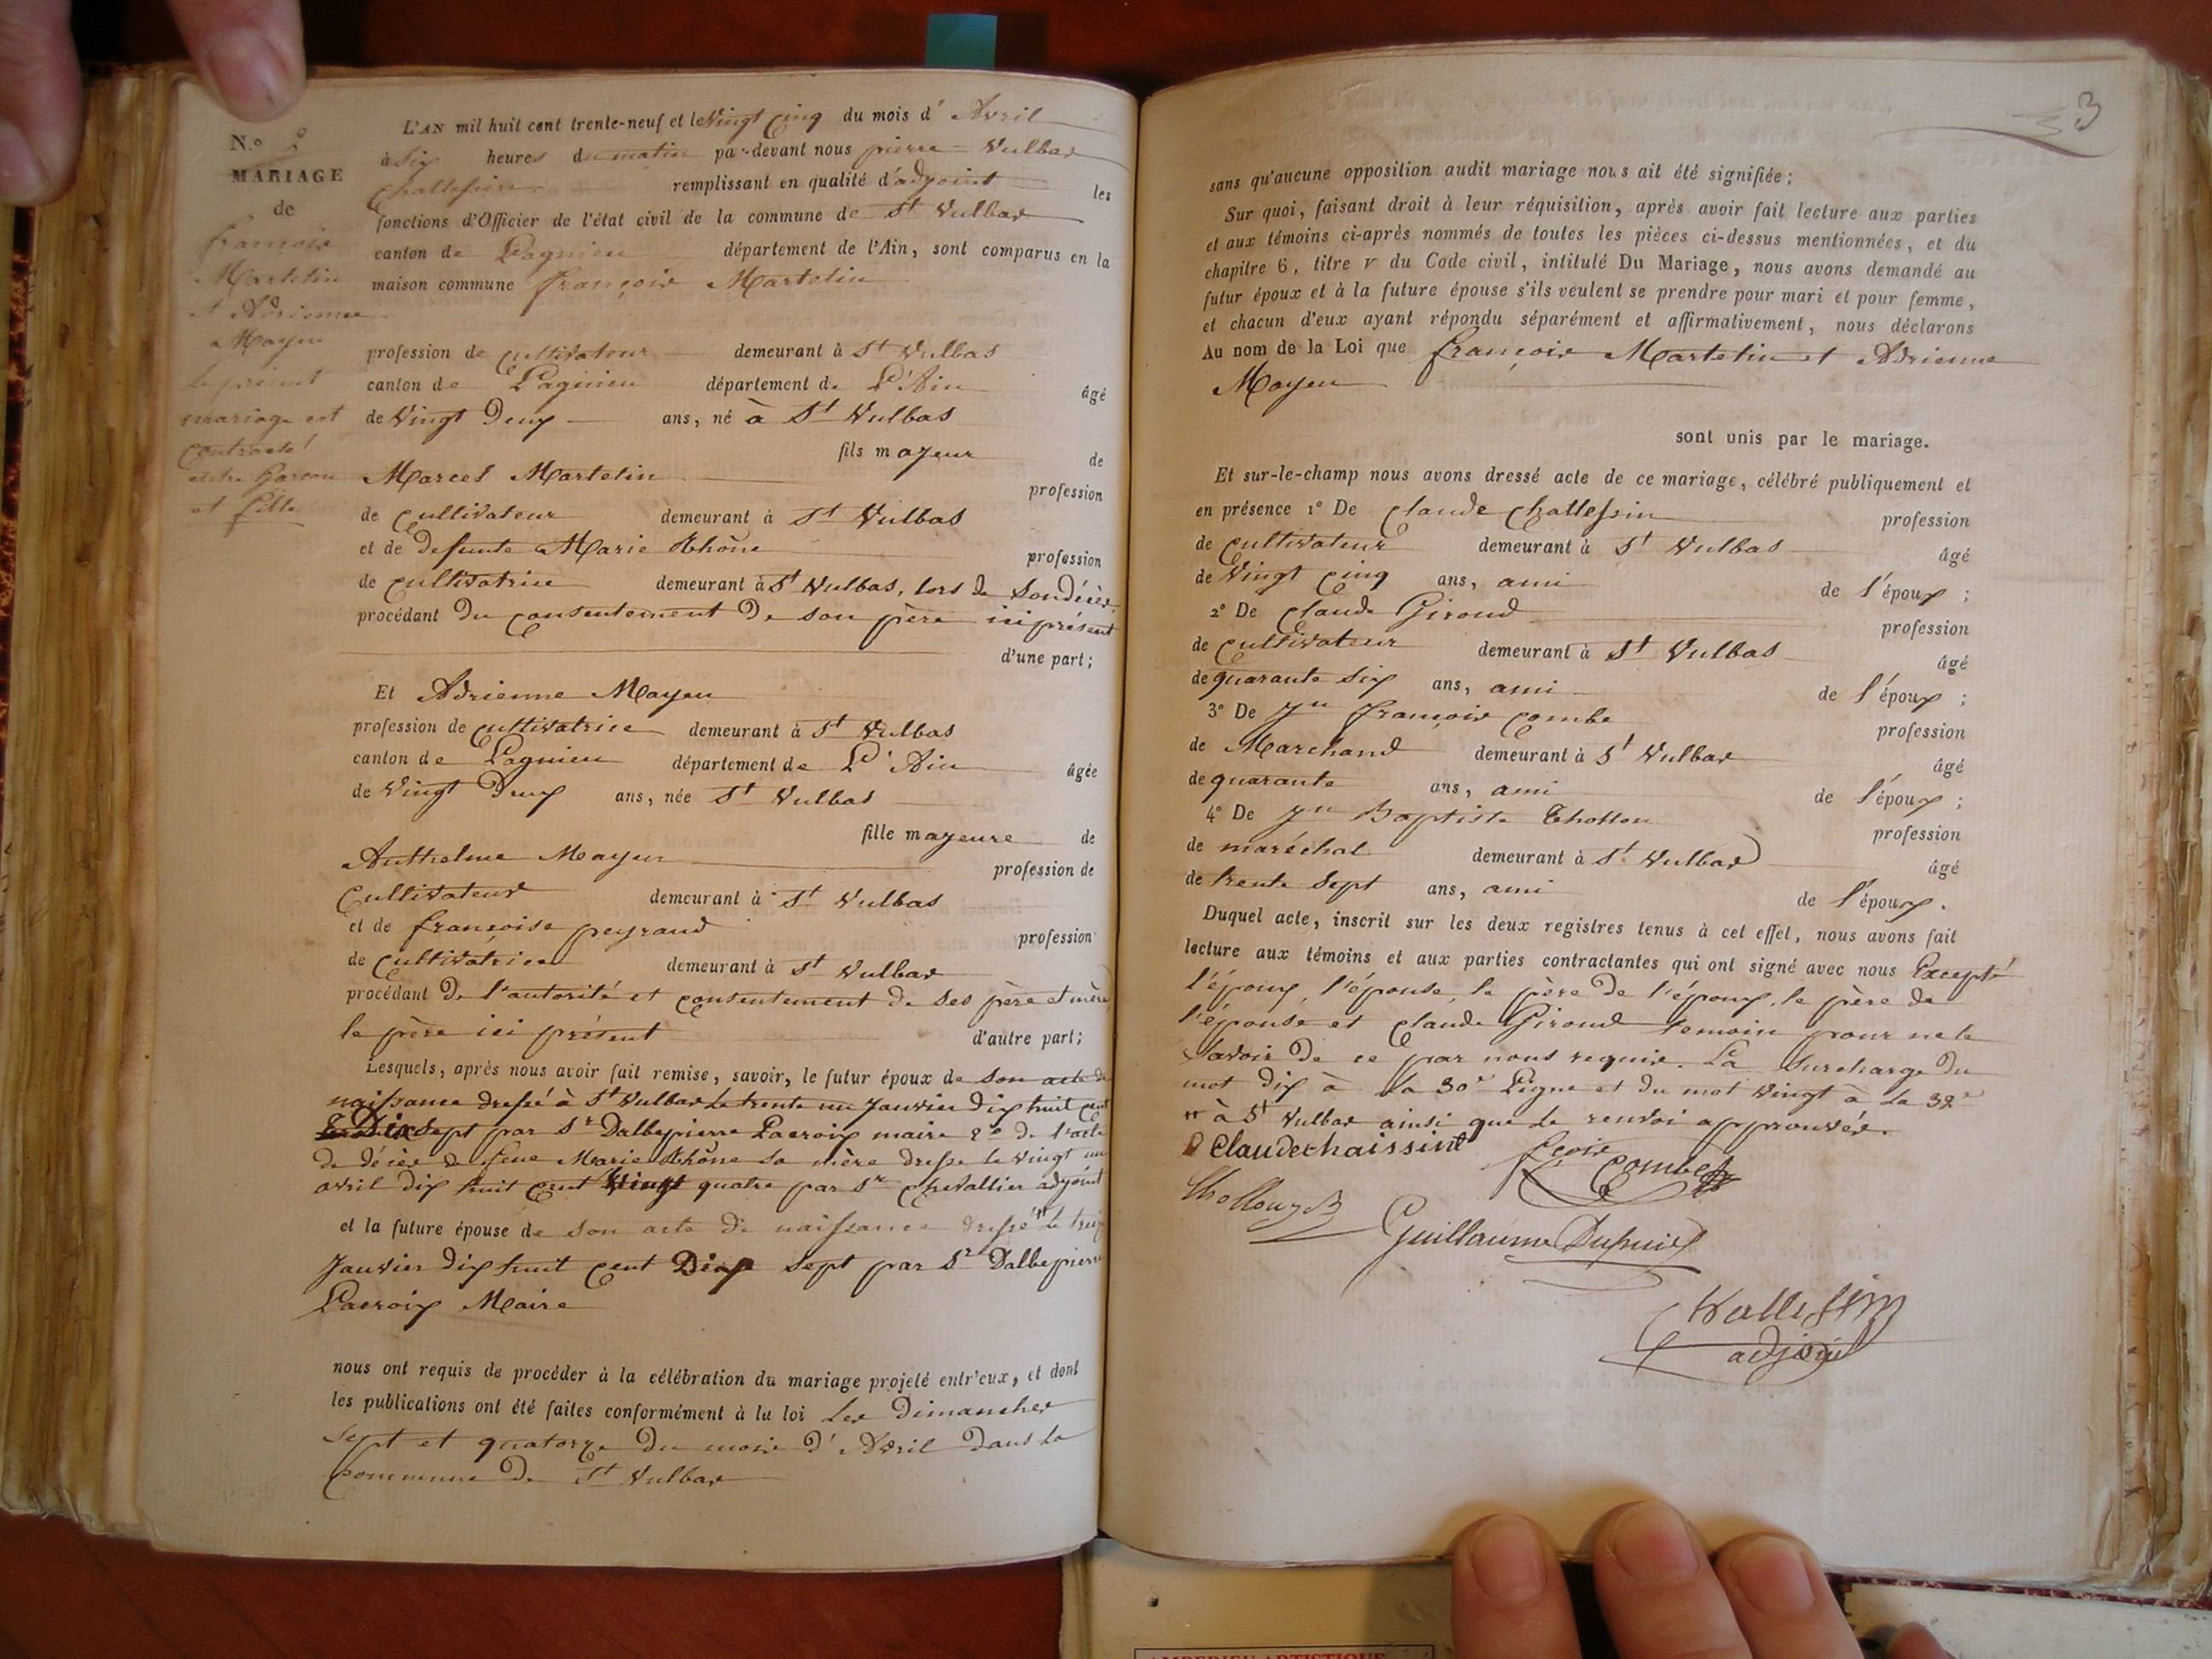 N.o 2
MARIAGE
de
françois
Martelin
et Adrienne
Mayeu
le présent
mariage est
contracté
entre garçon
et fille
L'AN mil huit cent trente-neuf et le Vingt Cinq du mois d' Avril
à Six heures du matin par-devant nous pierre Vulbas
Challessin remplissant en qualité d'adjoint les
fonctions d'Officier de l'état civil de la commune de St Vulbas
canton de Lagnieu département de l'Ain, sont comparus en la
maison commune françois Martelin
profession de cultivateur demeurant à St Vulbas
canton de Lagnieu département de L'Ain âgé
de Vingt Deux ans, né à St Vulbas
fils majeur de
Marcel Martelin profession
de Cultivateur demeurant à St Vulbas
et de defunte Marie Rhône profession
de Cultivatrice demeurant à St Vulbas, lors de Son décès,
procédant du consentement de son père ici présent
d'une part;
Et Adrienne Mayeu
profession de Cultivatrice demeurant à St Vulbas
canton de Lagnieu département de L'Ain âgée
de Vingt Deux ans, née St Vulbas
fille majeure de
Anthelme Mayeu profession de
Cultivateur demeurant à St Vulbas
et de françoise peyraud profession
de Cultivatrice demeurant à St Vulbas
procédant De l'autorité et consentement de Ses père et mère
le père ici présent d'autre part;
Lesquels, après nous avoir fait remise, savoir, le futur époux de Son acte de
naissance dressé à St Vulbas le trente un Janvier dix huit cent
Dix Sept par Sr Dalbepierre Lacroix maire 2o de l'acte
de décès de feue Marie Rhône Sa mère dressé le vingt un
avril dix huit cent Vingt quatre par Sr Chevallier adjoint
et la future épouse de Son acte de naissance dressé le
Janvier dix huit cent Dix Sept par Sr Dalbepierre
Lacroix Maire
nous ont requis de procéder à la célébration du mariage projeté entr'eux, et dont
les publications ont été faites conformément à la loi Les Dimanches
Sept et quatorze Du mois d'Avril Dans la
Commune De St Vulbas
3
sans qu'aucune opposition audit mariage nous ait été signifiée;
Sur quoi, faisant droit à leur réquisition, après avoir fait lecture aux parties
et aux témoins ci-après nommés de toutes les pièces ci-dessus mentionnées, et du
chapitre 6, titre v du Code civil, intitulé Du Mariage, nous avons demandé au
futur époux et à la future épouse s'ils veulent se prendre pour mari et pour femme,
et chacun d'eux ayant répondu séparément et affirmativement, nous déclarons
Au nom de la Loi que françois Martelin et Adrienne
Mayeu
sont unis par le mariage.
Et sur-le-champ nous avons dressé acte de ce mariage, célébré publiquement et
en présence 1o De Claude Challessin profession
de Cultivateur demeurant à St Vulbas âgé
de Vingt Cinq ans, ami de l'époux;
2o De Claude Giroud profession
de Cultivateur demeurant à St Vulbas âgé
de quarante Six ans, ami de l'époux;
3o De Jn françois Combe profession
de Marchand demeurant à St Vulbas âgé
de quarante ans, ami de l'époux;
4o De Jn Baptiste Thollon profession
de maréchal demeurant à St Vulbas âgé
de trente Sept ans, ami de l'époux.
Duquel acte, inscrit sur les deux registres tenus à cet effet, nous avons fait
lecture aux témoins et aux parties contractantes qui ont signé avec nous Excepté
l'époux, l'épouse, le père de l'époux, le père de
l'épouse et Claude Giroud temoin pour ne le
Savoir De ce par nous requis. La Surcharge Du
mot dix à la 30e Ligne et du mot Vingt à la 32e
à St Vulbas ainsi que le renvoi approuvés.
Claudechaissint fcois
Combe
Thollon JB
Guillaume Dupuis
Challessin
adjoint
AMBERIEU ARTISTIQUE